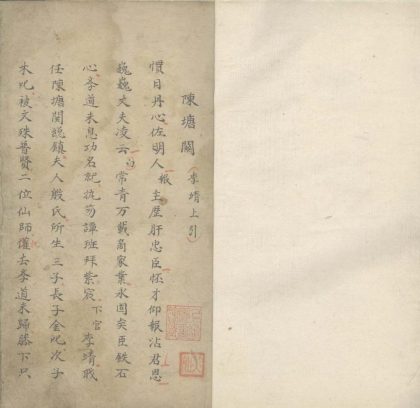 陳塘關
李靖上引
慣日丹心佐明人主歷肝忠臣怀才仰報沾君恩
巍巍丈夫凌云白常青万載裔家業永固矣臣鉄石
心奉道未息功名紀抗笏譚班拜紫宸下官李靖職
任陳塘関総鎮夫人殷氏所生三子長子金吒次子
木吒被文殊普賢二位仙師度去奉道未歸膝下只